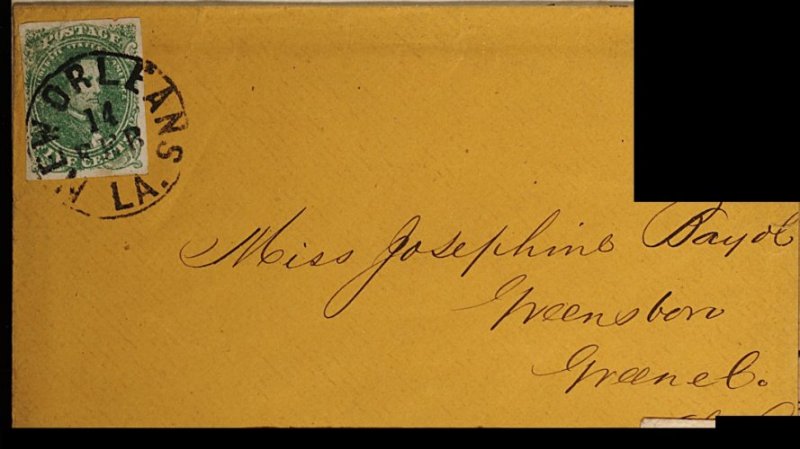 POSTAGE
NEW ORLEANS
14
FEB
LA.
FIVE CENTS
Miss Josephine Bayol
Greensboro
Greene C.